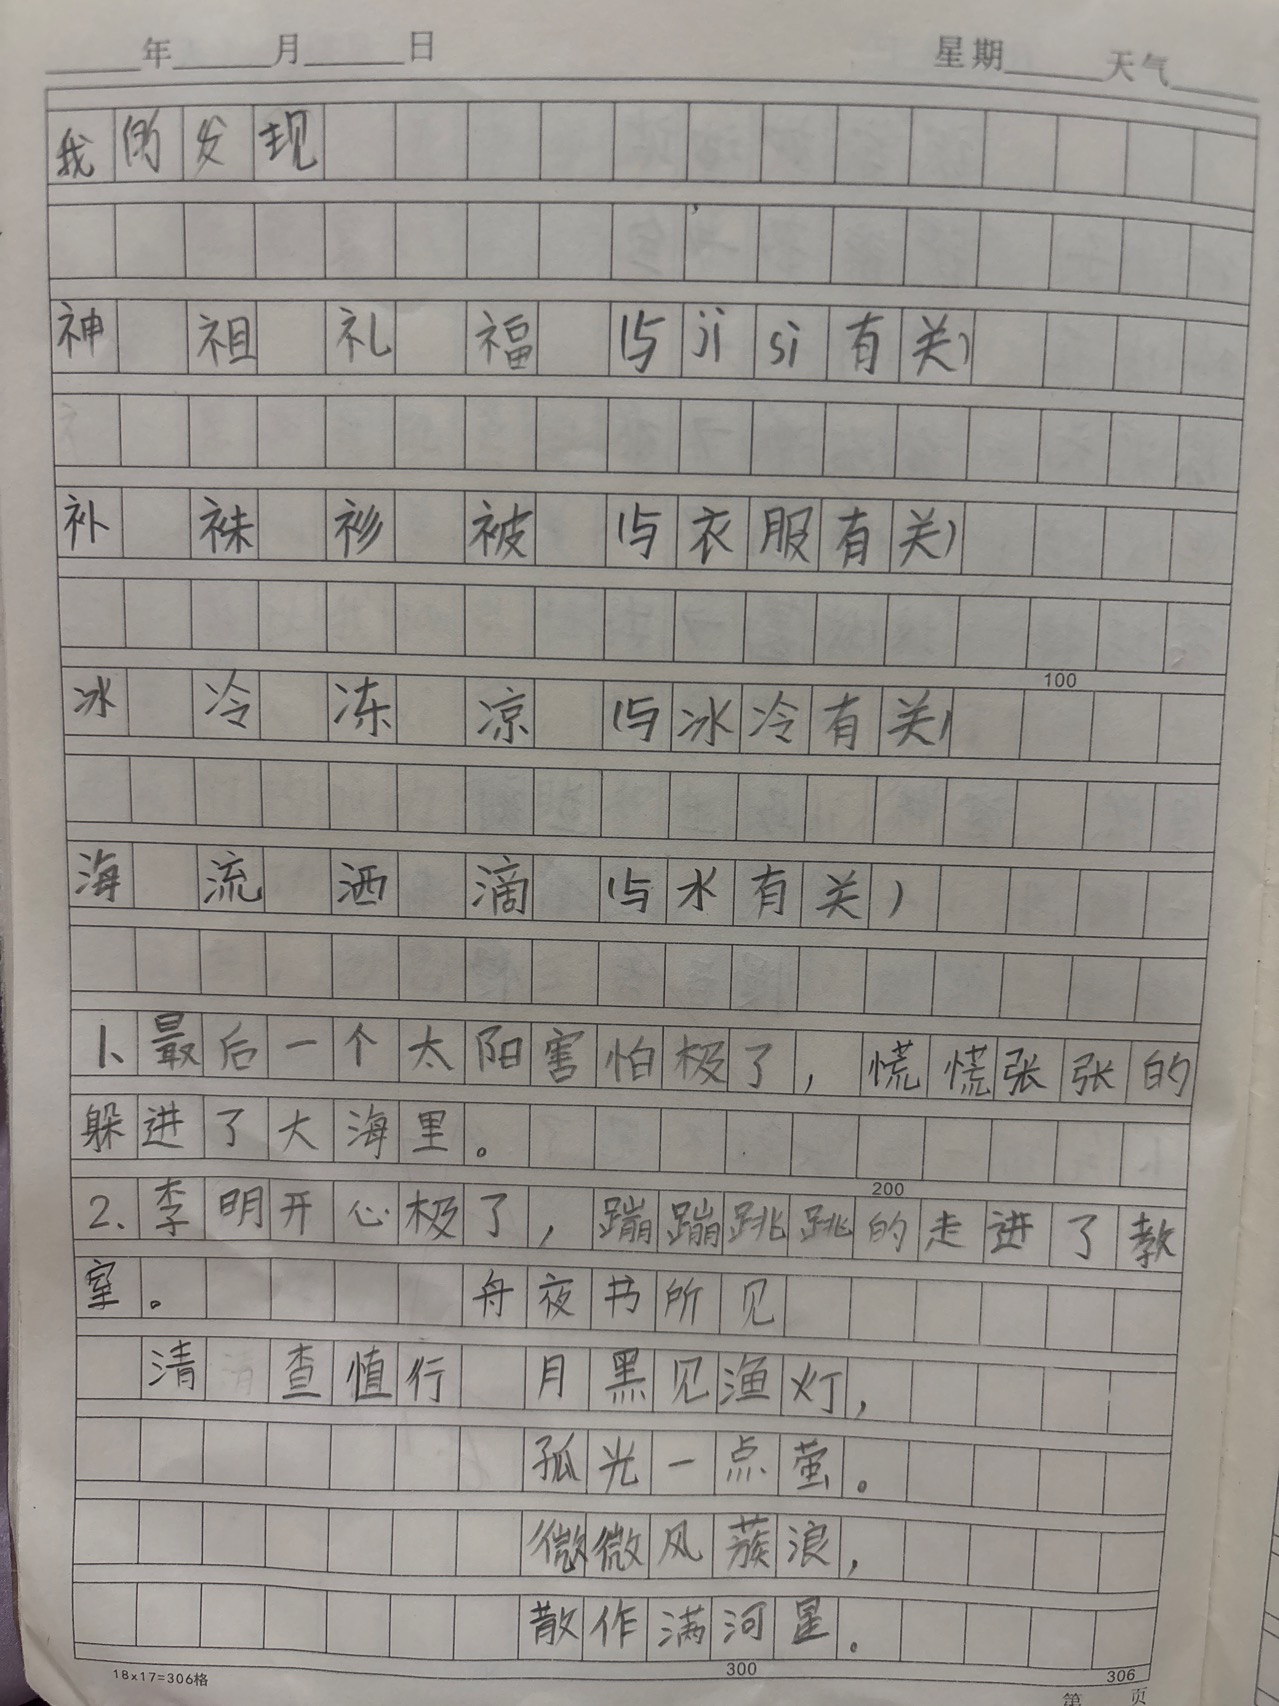 年 月 日 星期 天气
我的发现
神 祖 礼 福 (与jì sì有关)
补 袜 衫 被 (与衣服有关)
100
冰 冷 冻 凉 (与冰冷有关)
海 流 洒 滴 (与水有关)
1、最后一个太阳害怕极了，慌慌张张的
躲进了大海里。
200
2、李明开心极了，蹦蹦跳跳的走进了教
室。 舟夜书所见
清 查慎行 月黑见渔灯，
孤光一点萤。
微微风蔟浪，
散作满河星。
18×17=306格 300 306
第 页